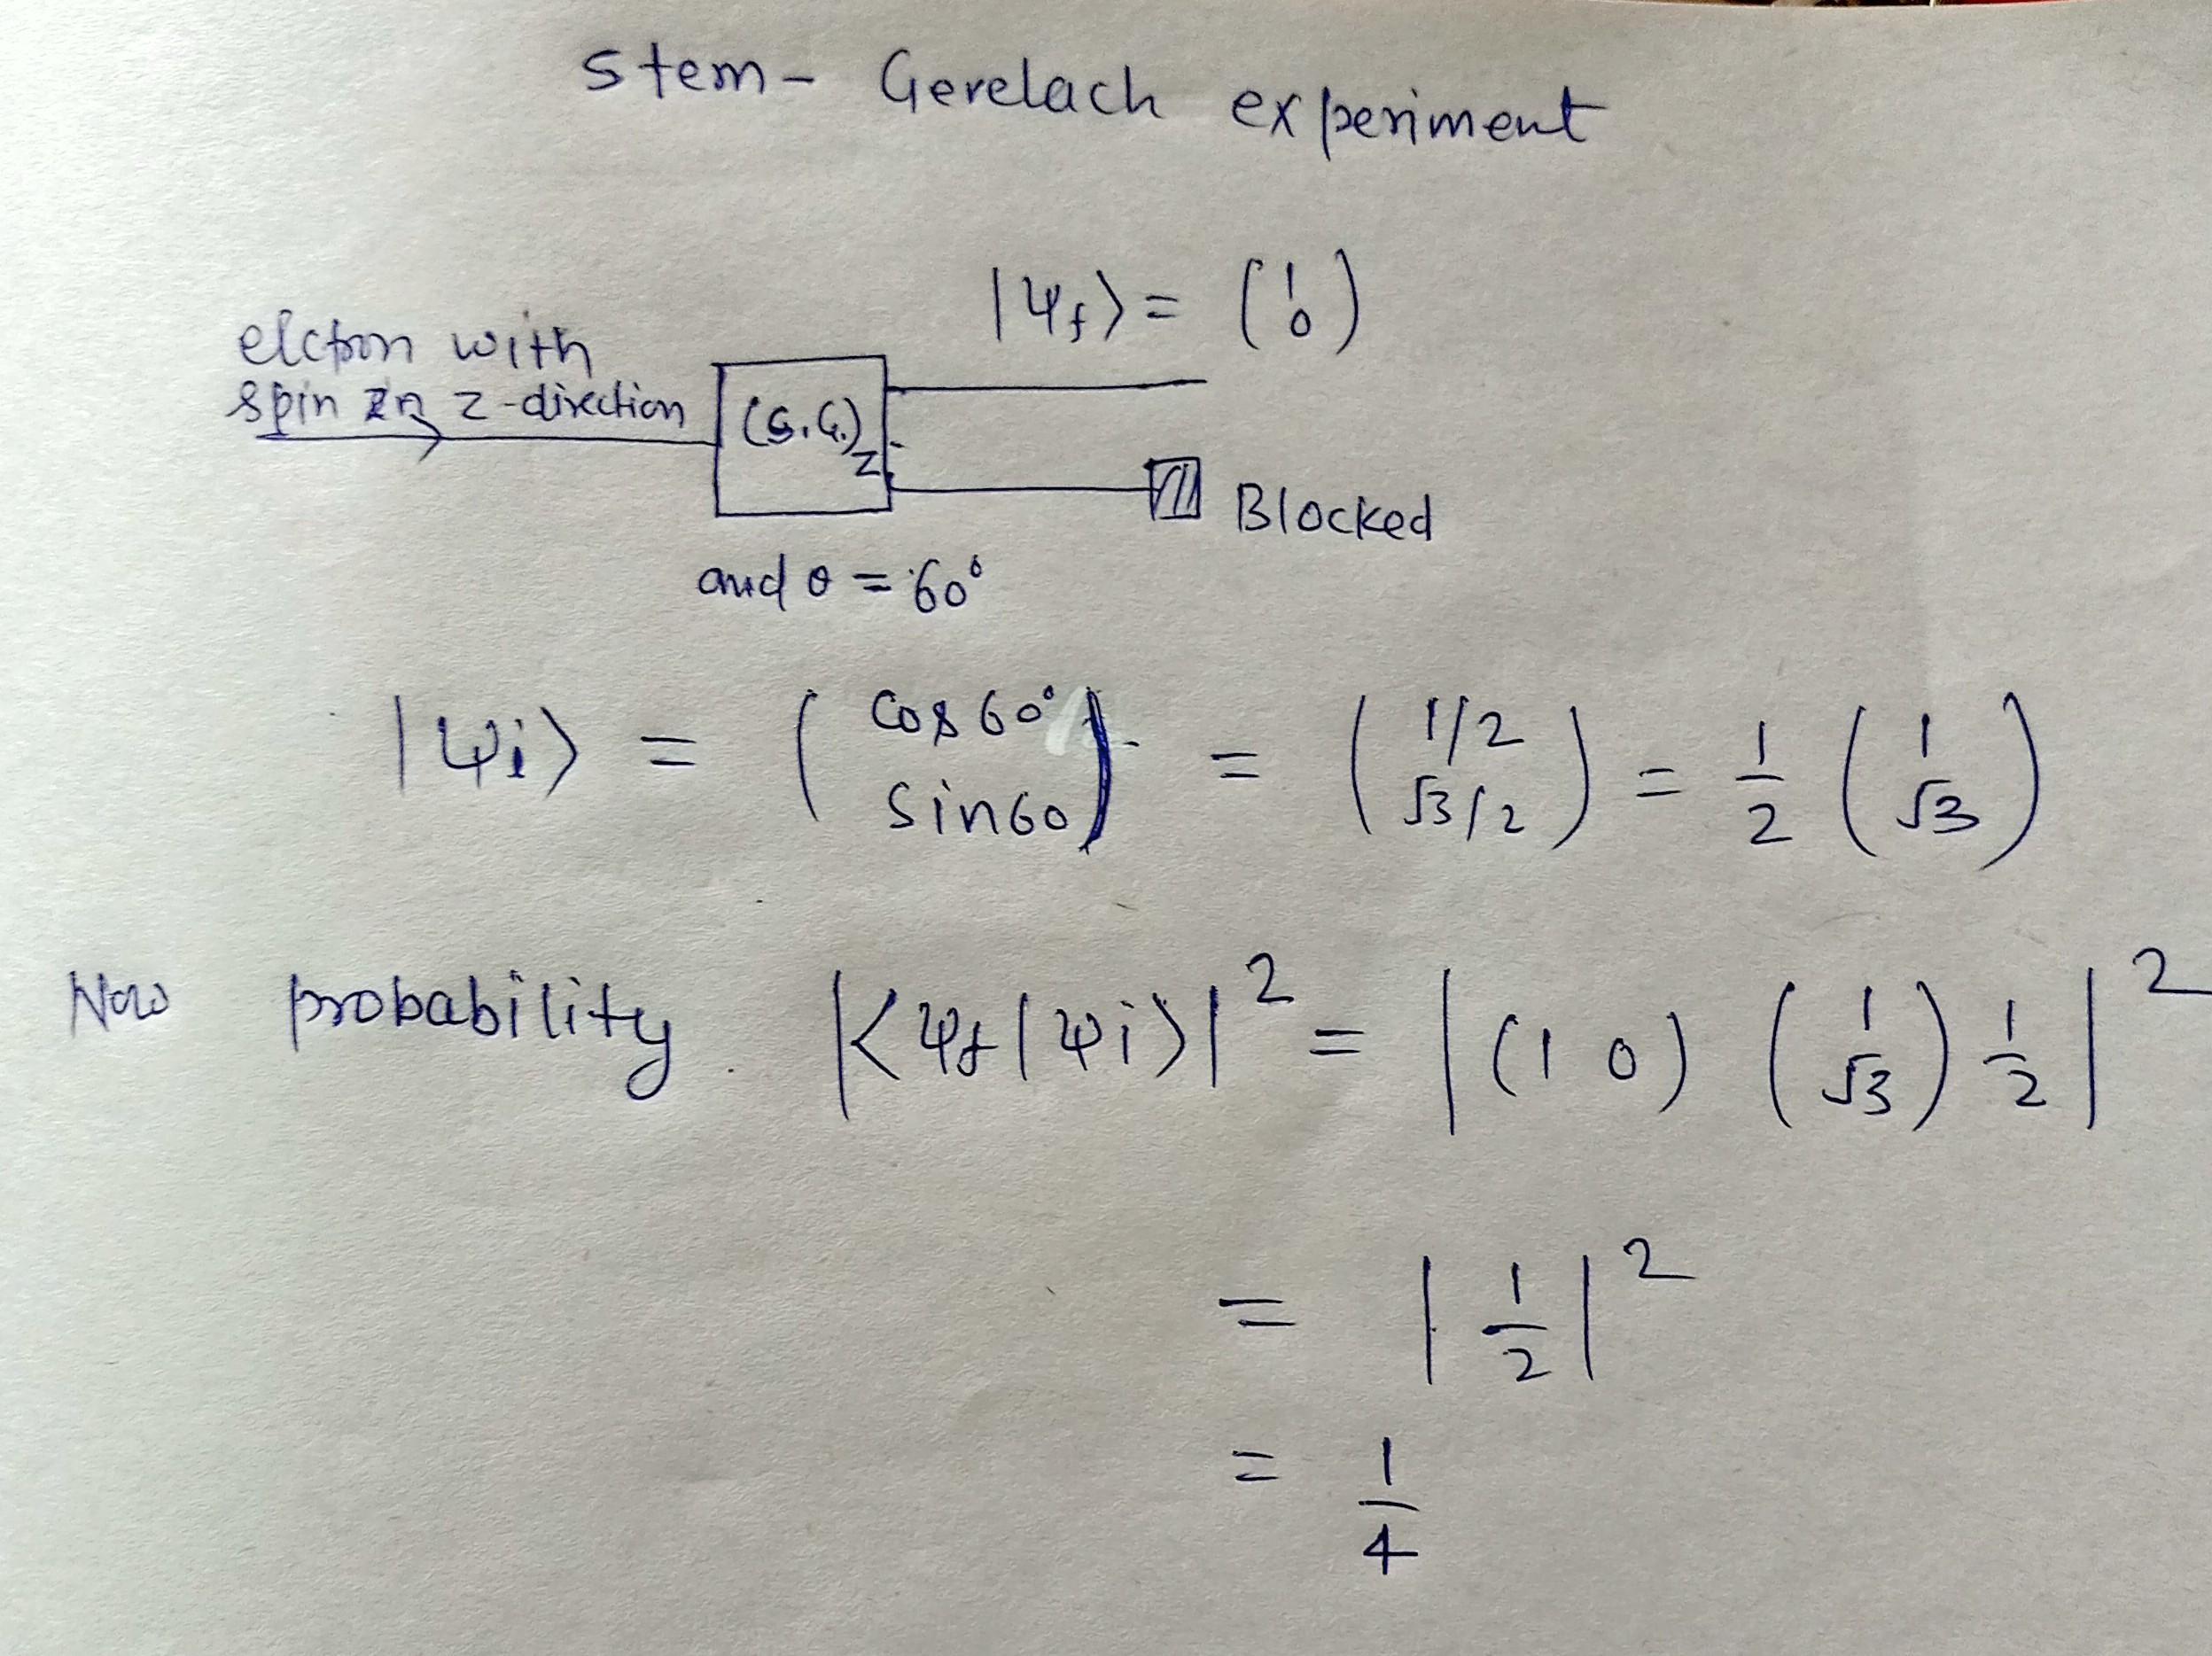 Stern- Gerelach experiment
|Ψf⟩ = (1 0)
elctron with
spin in z-direction
(S.G.)z
Blocked
and θ = 60°
|Ψi⟩ = (cos60° sin60) = (1/2 √3/2) = 1/2 (1 √3)
Now probability |<Ψf|Ψi>|² = |(1 0) (1 √3) 1/2|²
= |1/2|²
= 1/4